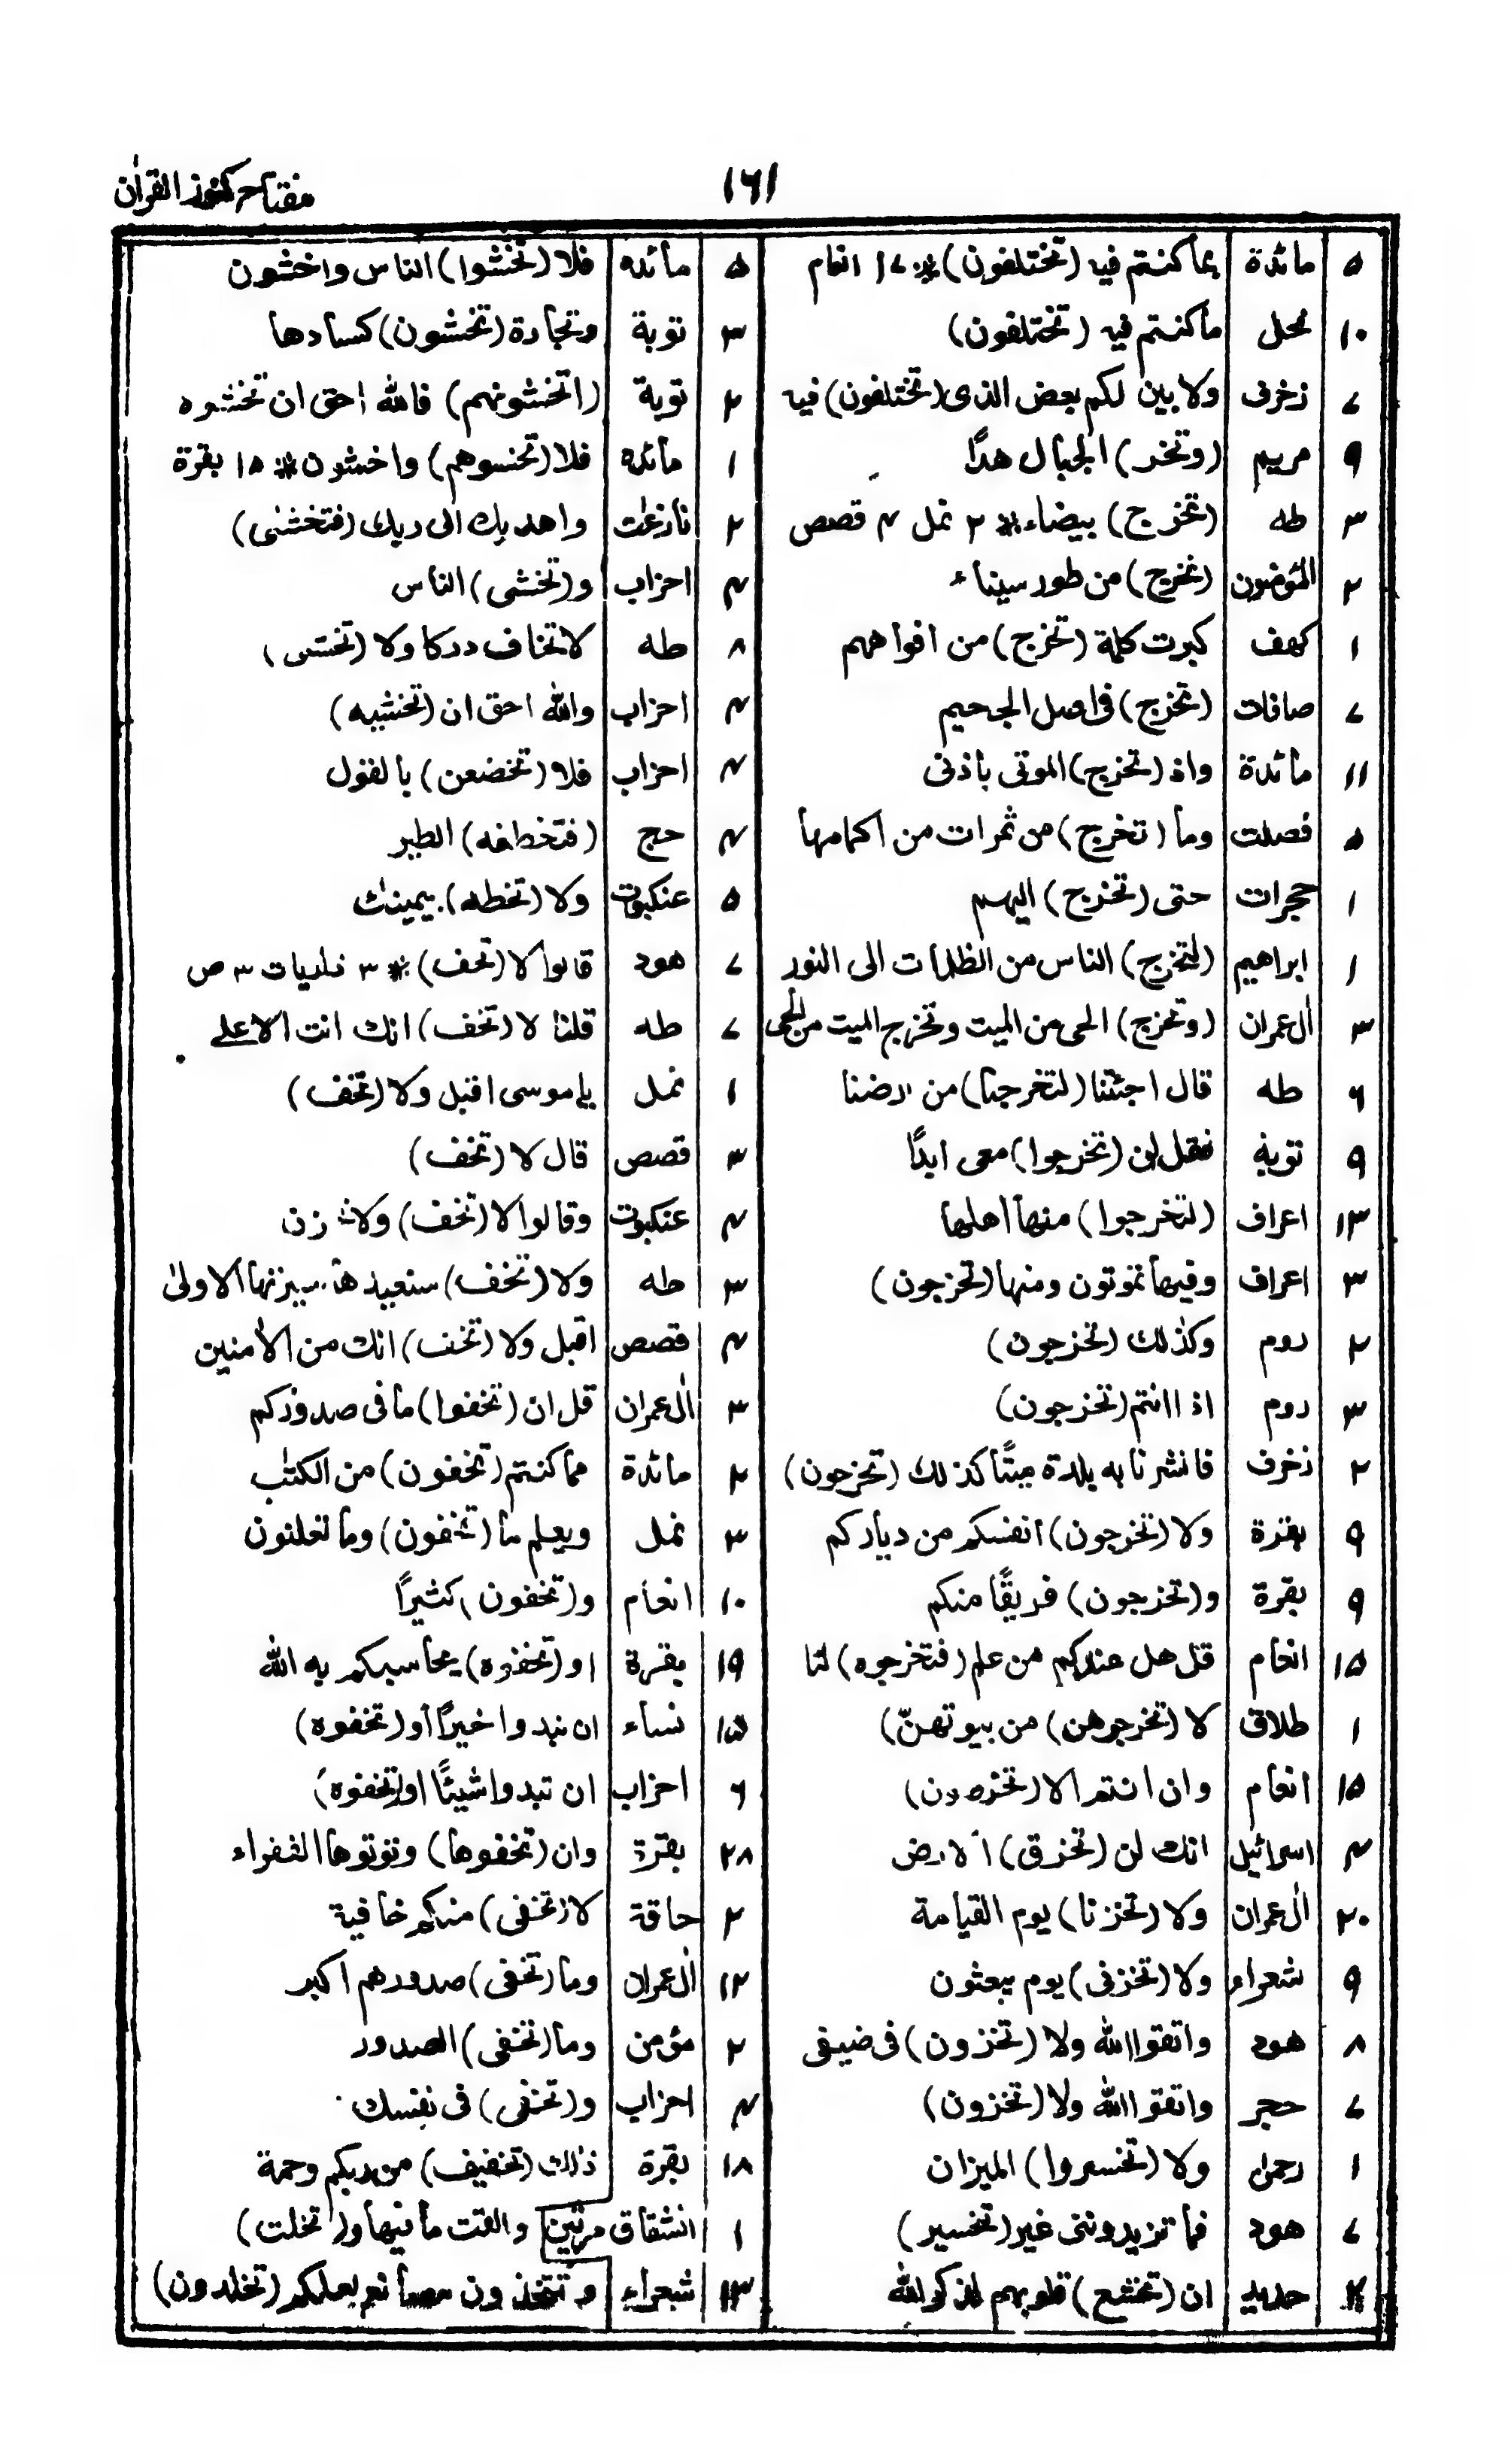 مفتاح کنوز القرآن
۱۶۱
۵ مائدة بما کنتم فیه (تختلفون)* ۱۷ انعام
۱۰ نحل ما کنتم فیه (تختلفون)
۷ زخرف ولابین لکم بعض الذی (تختلفون) فیه
۹ مریم (وتخر) الجبال هدًا
۳ طه (تخرج) بیضاء* ۲ نمل ۴ قصص
۲ المؤمنون (تخرج) من طور سیناء
۱ کهف کبرت کلمة (تخرج) من افواههم
۷ صافات (تخرج) فی اصل الجحیم
۱۱ مائدة واذ (تخرج) الموتی باذنی
۵ فصلت وما (تخرج) من ثمرات من اکمامها
۱ حجرات حتی (تخرج) الیهم
۱ ابراهیم (لتخرج) الناس من الظلمات الی النور
۳ اٰل عمران (وتخرج) الحی من المیت وتخرج المیت من الحی
۶ طه قال اجئتنا (لتخرجنا) من ارضنا
۹ توبة فقل لن (تخرجوا) معی ابدًا
۱۳ اعراف (لتخرجوا) منها اهلها
۳ اعراف وفیها تموتون ومنها (تخرجون)
۲ روم وکذلك (تخرجون)
۳ روم اذا انتم (تخرجون)
۲ زخرف فانشرنا به بلدة میتًا کذلك (تخرجون)
۹ بقرة ولا (تخرجون) انفسکم من دیارکم
۹ بقرة و (تخرجون) فریقًا منکم
۱۵ انعام قل هل عندکم من علم (فتخرجوه) لنا
۱ طلاق لا (تخرجوهن) من بیوتهنّ
۱۵ انعام وان انتم الا (تخرصون)
۴ اسرائیل انك لن (تخرق) الارض
۲۰ اٰل عمران ولا (تخزنا) یوم القیامة
۹ شعراء ولا (تخزنی) یوم یبعثون
۸ هود واتقوا الله ولا (تخزون) فی ضیفی
۷ حجر واتقوا الله ولا (تخزون)
۱ رحمن ولا (تخسروا) المیزان
۷ هود فما تزیدوننی غیر (تخسیر)
حدید ان (تخشع) قلوبهم لذکر الله
۵ مائده فلا (تخشوا) الناس واخشون
۳ توبة وتجارة (تخشون) کسادها
۲ توبة (اتخشونهم) فالله احق ان تخشوه
۱ مائده فلا (تخشوهم) واخشون* ۱۵ بقرة
۲ نازعٰت واهدیك الی ربك (فتخشٰی)
۴ احزاب و (تخشی) الناس
۸ طه لا تخاف درکا ولا (تخشی)
۴ احزاب والله احق ان (تخشیه)
۴ احزاب فلا (تخضعن) بالقول
۴ حج (فتخطفه) الطیر
۵ عنکبوت ولا (تخطه) بیمینك
۷ هود قالوا لا (تخف)* ۳ ذاریات ۳ ص
۷ طه قلنا لا (تخف) انك انت الاعلے
۱ نمل یا موسی اقبل ولا (تخف)
۳ قصص قال لا (تخف)
۴ عنکبوت وقالوا لا (تخف) ولاتحزن
۳ طه ولا (تخف) سنعیدها سیرتها الاولیٰ
۴ قصص اقبل ولا (تخف) انك من الاٰمنین
۳ اٰل عمران قل ان (تخفوا) ما فی صدورکم
۲ مائدة مما کنتم (تخفون) من الکتٰب
۳ نمل ویعلم ما (تخفون) وما تعلنون
۱۰ انعام و (تخفون) کثیرًا
۱۹ بقرة او (تخفوه) یحاسبکم به الله
۱۵ نساء ان تبدوا خیرًا او (تخفوه)
۶ احزاب ان تبدوا شیئًا او (تخفوه)
۲۸ بقرة وان (تخفوها) وتوتوها الفقراء
۲ حاقة لا (تخفی) منکم خافیة
۱۲ اٰل عمران وما (تخفی) صدورهم اکبر
۲ مؤمن وما (تخفی) الصدور
۴ احزاب و (تخفی) فی نفسك
۱۸ بقرة ذالك (تخفیف) من ربکم ورحمة
۱ انشقاق مرتین والقت ما فیها و (تخلت)
۱۳ شعراء و تتخذون مصانع لعلکم (تخلدون)